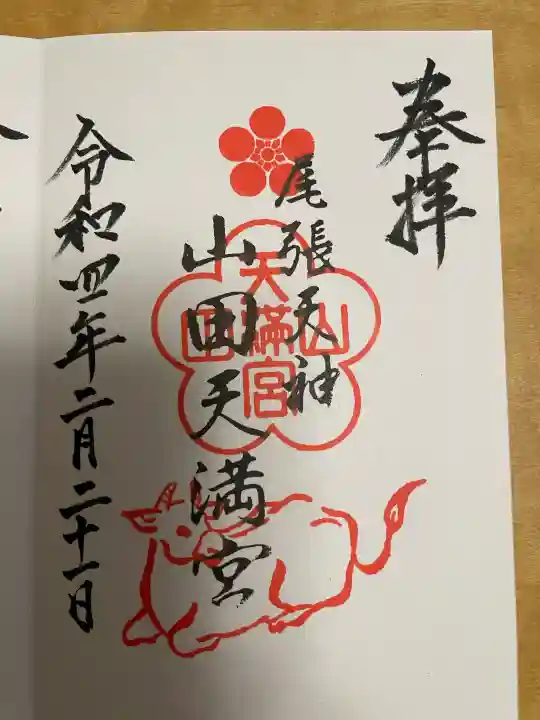 奉拝
尾張天神
山田天満宮
山田天満宮
令和四年二月二十一日